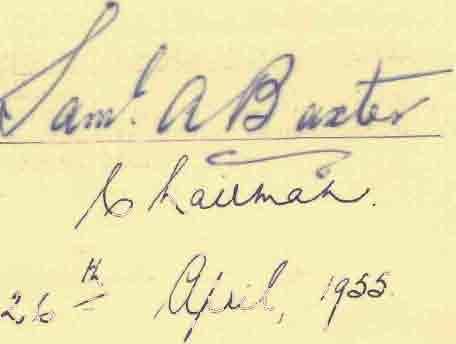 Saml. A Baxter
Chairman.
26th April, 1955.